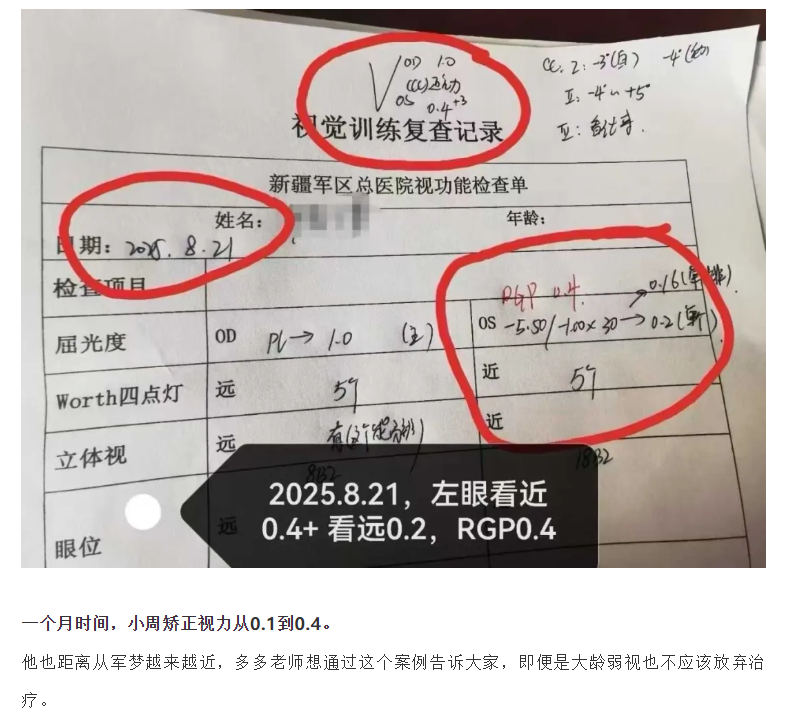 OD 1.0
(CC)近力
OS 0.4+3
CC. I: -3°(自) -4°(他)
II: -4° ~ +5°
III:
视觉训练复查记录
新疆军区总医院视功能检查单
姓名: 年龄:
日期: 2025.8.21
检查项目
RGP 0.4. 0.16(单排)
屈光度 OD PL→1.0 (主) OS -5.50/-1.00×30→0.2(单个)
Worth四点灯 远 5个 近 5个
立体视 远 近
眼位 远
2025.8.21，左眼看近
0.4+ 看远0.2，RGP0.4
一个月时间，小周矫正视力从0.1到0.4。
他也距离从军梦越来越近，多多老师想通过这个案例告诉大家，即便是大龄弱视也不应该放弃治
疗。